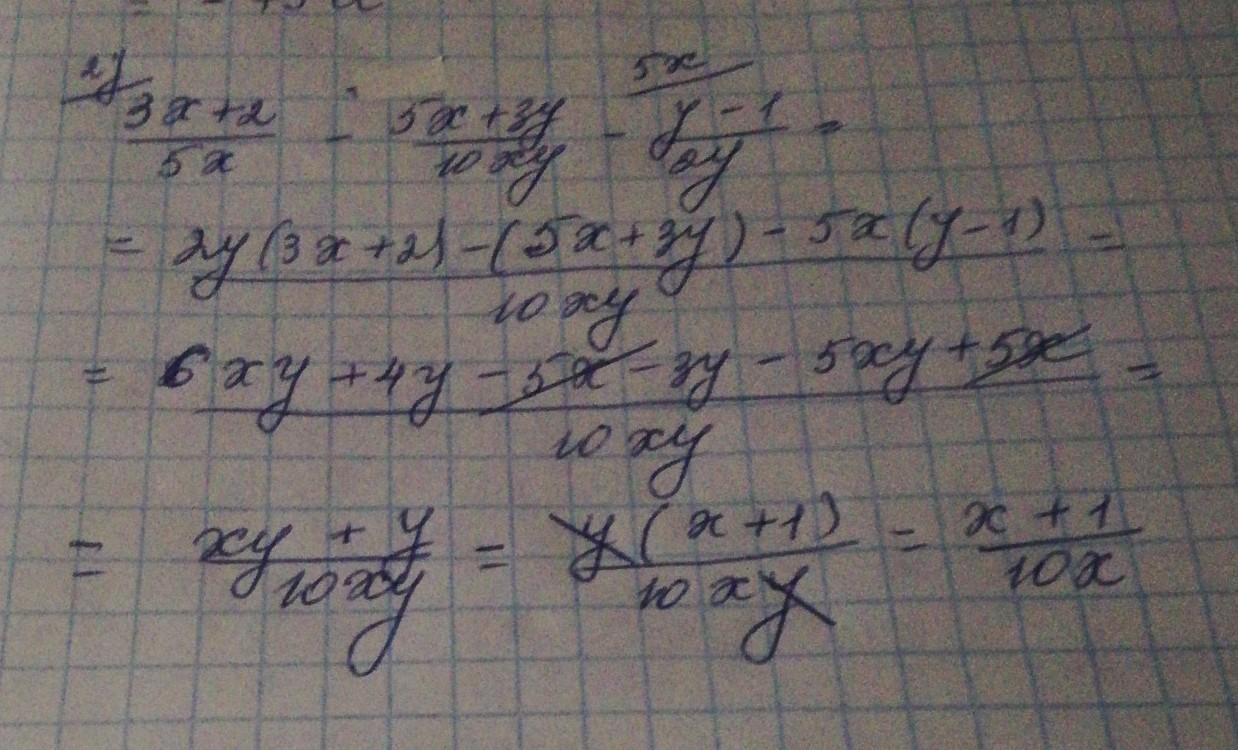 2y 5x
3x+2 / 5x - 5x+3y / 10xy - y-1 / 2y =
= 2y(3x+2)-(5x+3y)-5x(y-1) / 10xy =
= 6xy+4y-5x-3y-5xy+5x / 10xy =
= xy+y / 10xy = y(x+1) / 10xy = x+1 / 10x